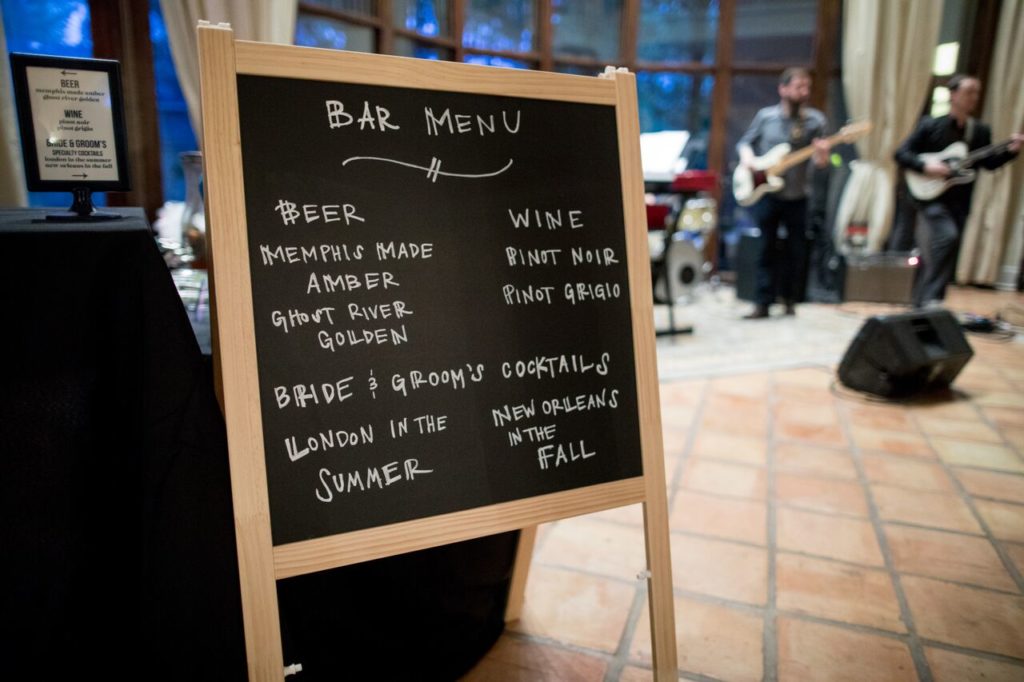 BEER
memphis made amber
ghost river golden
WINE
pinot noir
pinot grigio
BRIDE & GROOM'S
SPECIALTY COCKTAILS
london in the summer
new orleans in the fall
BAR MENU
BEER
MEMPHIS MADE
AMBER
GHOST RIVER
GOLDEN
WINE
PINOT NOIR
PINOT GRIGIO
BRIDE & GROOM'S COCKTAILS
LONDON IN THE
SUMMER
NEW ORLEANS
IN THE
FALL